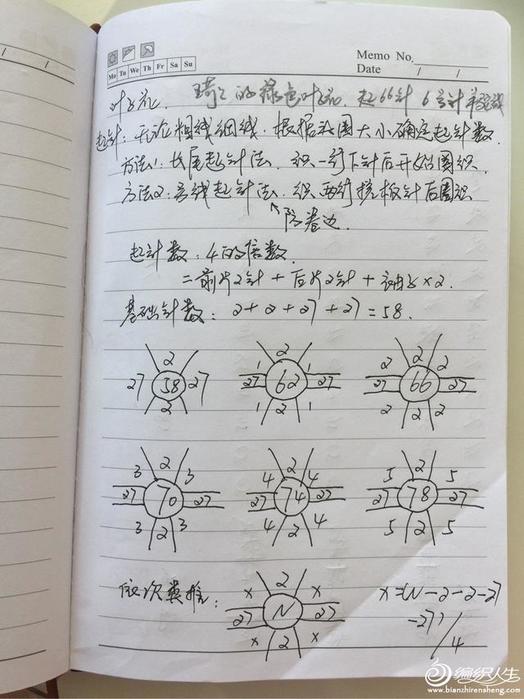 Memo No.
Mo Tu We Th Fr Sa Su
Date / /
叶子花. 琦琦的绿色叶子花. 起66针 6号针
起针: 无论粗线细线. 根据对围大小确定起针数.
方法1: 长尾起针法. 织一行下针后开始圈织.
方法2: 另线起针法. 织两行搓板针后圈织
↖防卷边.
起针数: 4的倍数.
=前片2针+后片2针+袖子×2.
基础针数: 2+2+27+27=58.
2 2 2 2 2
27 58 27 1 27 62 1 27 2 27 66 2 27
2 1 2 1 2 2 2
3 2 3 4 2 4 5 2 5
27 70 27 27 74 27 27 78 27
3 2 3 4 2 4 5 2 5
依次类推: x 2 x x=(N-2-2-27
27 N 27 -27)/4
x 2 x
编织人生
www.bianzhirensheng.com